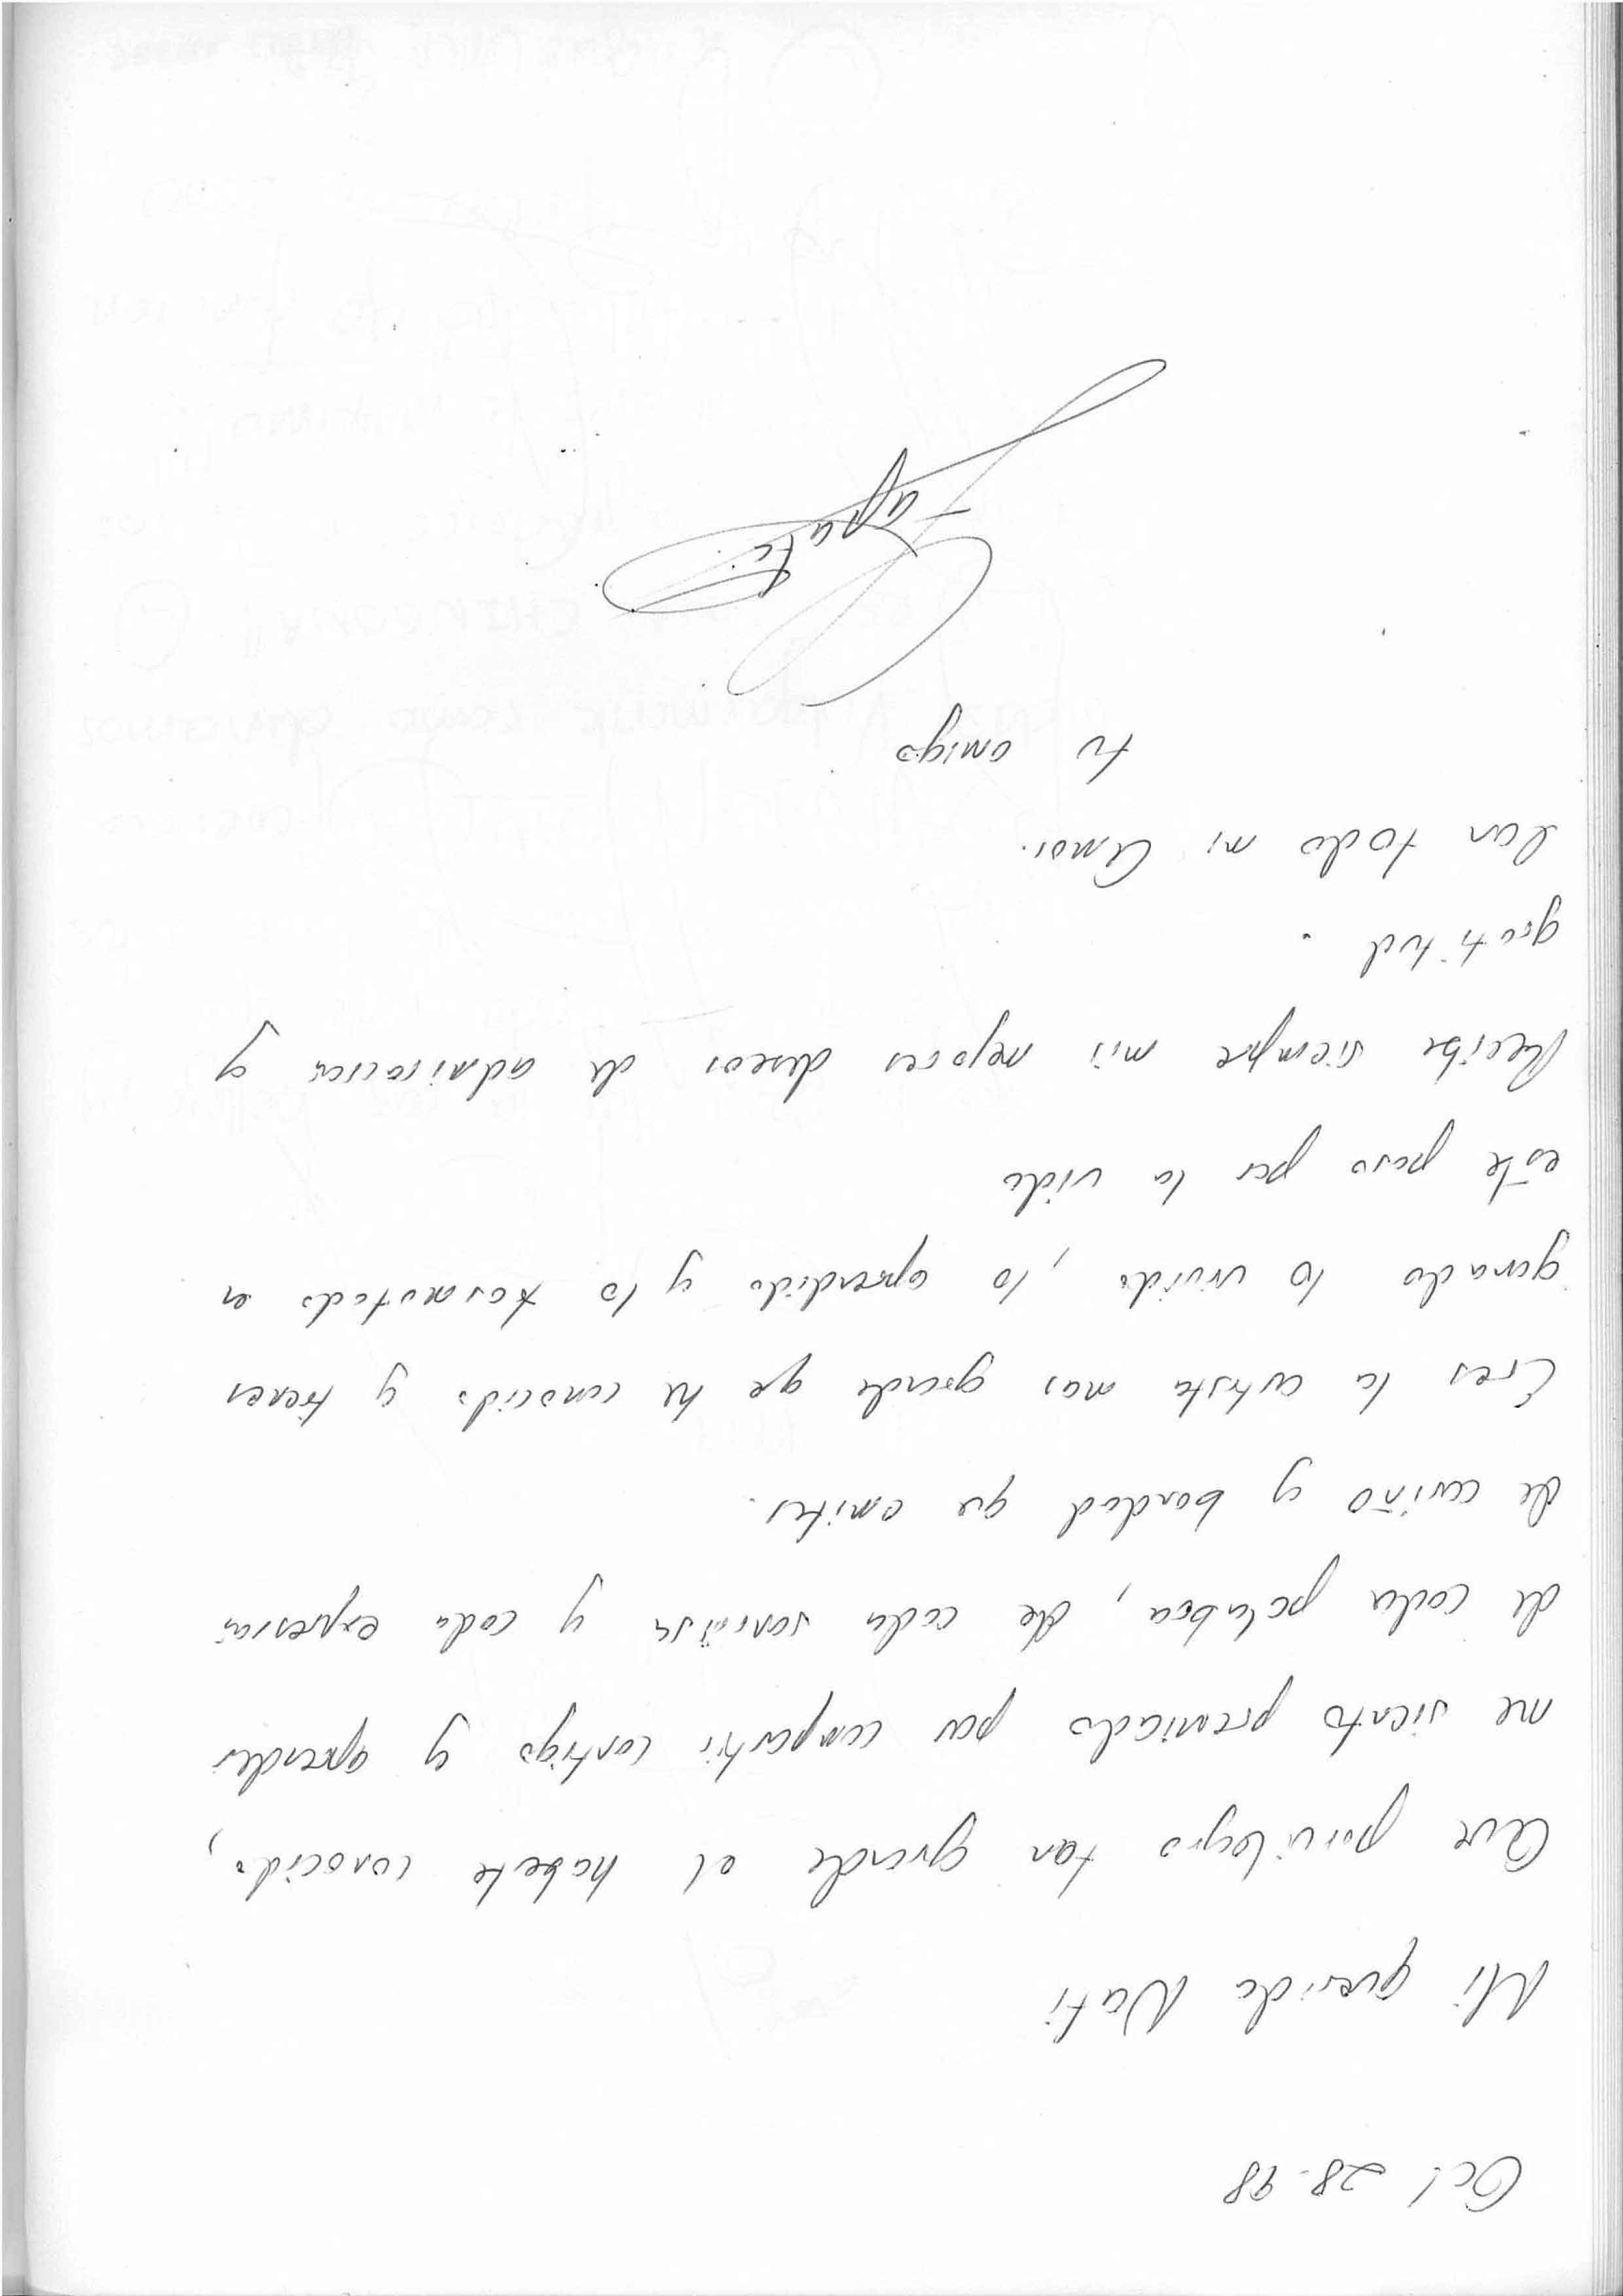 Oct 28-98
Mi querida Nati
Que privilegio tan grande el haberte conocido,
me siento premiado por compartir contigo y aprender
de cada palabra, de cada sonrisa y cada expresión
de cariño y bondad que emites.
Eres la artista mas grande que he conocido y tienes
ganado lo vivido, lo aprendido y lo transmitido en
este paso por la vida
Recibe siempre mis mejores deseos de admiración y
gratitud.
Con todo mi Amor.
tu amigo